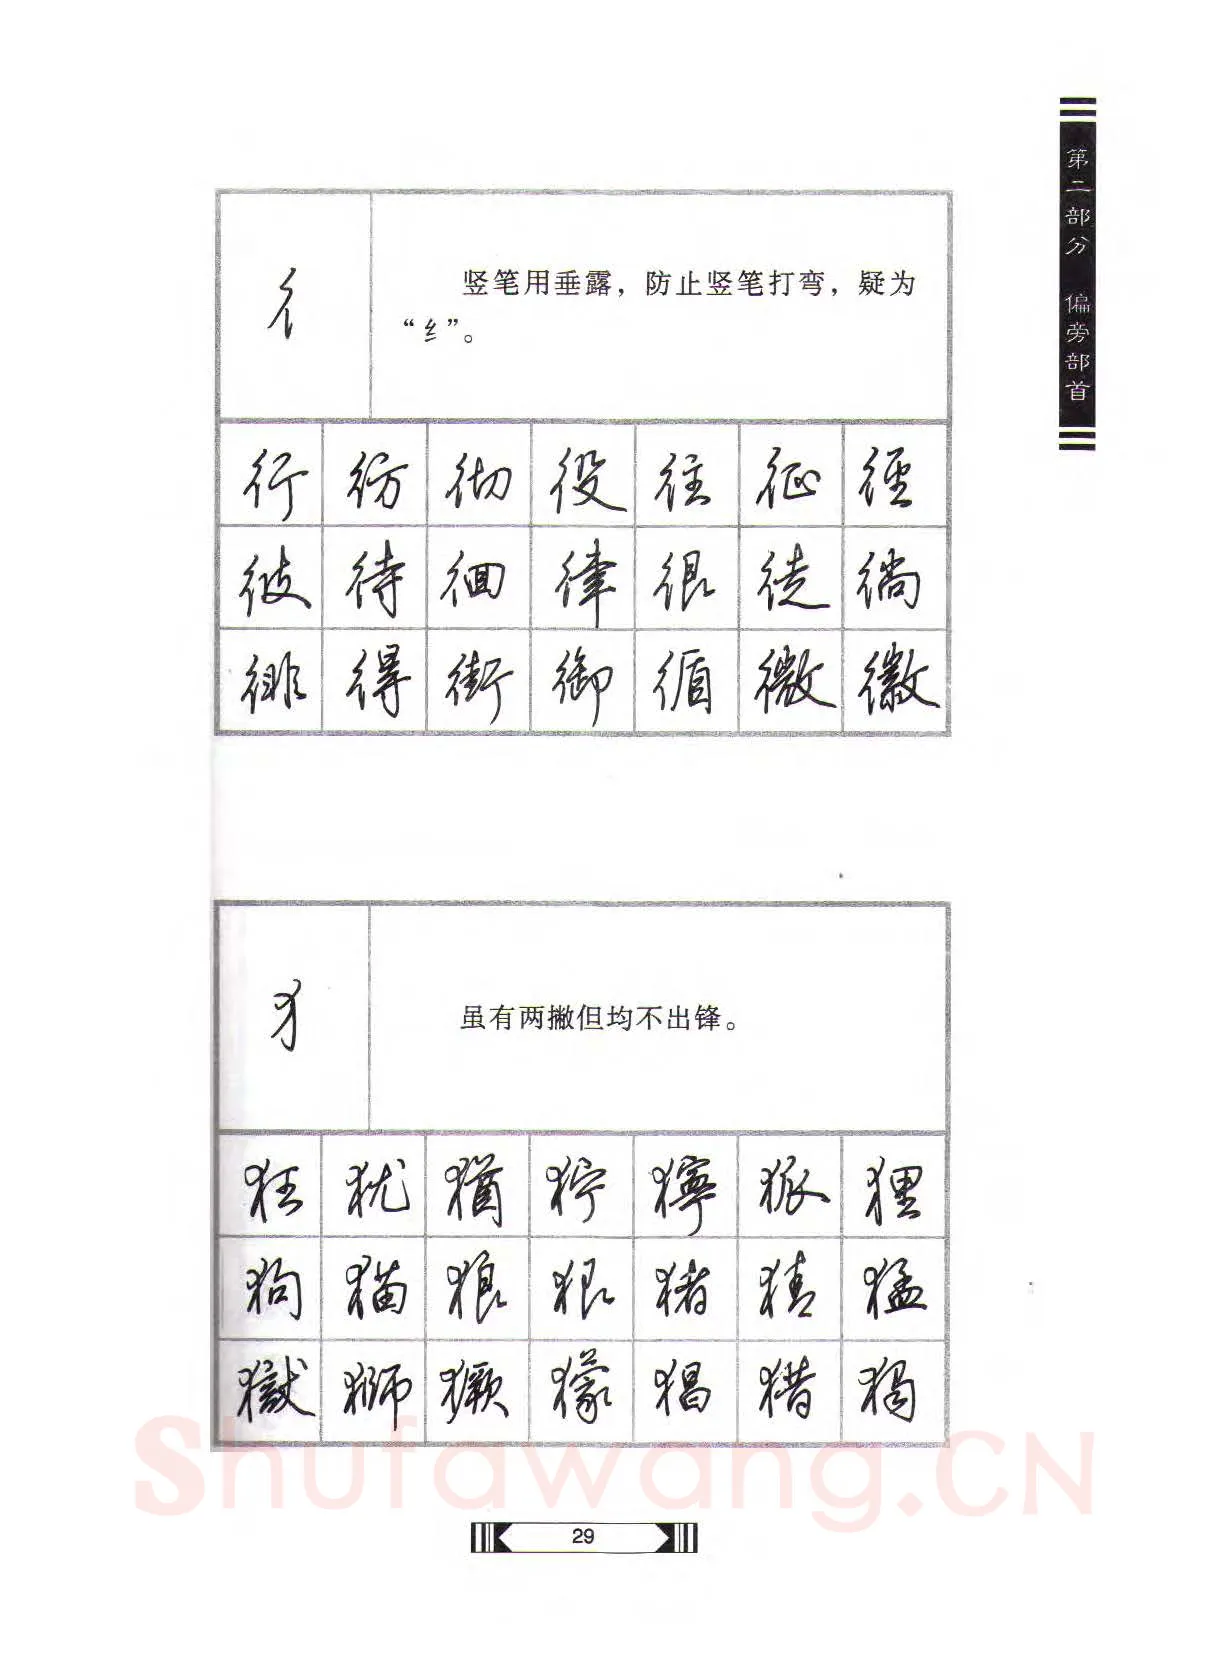 第二部分 偏旁部首
彳
竖笔用垂露，防止竖笔打弯，疑为
“纟”。
行 彷 彻 役 往 征 径
彼 待 徊 律 很 徒 徜
徘 得 街 御 循 微 徽
犭
虽有两撇但均不出锋。
狂 犹 猶 狞 獰 狐 狸
狗 猫 狼 狠 猪 猜 猛
獄 獅 獗 獴 猖 猎 猲
Shufawang.CN
29